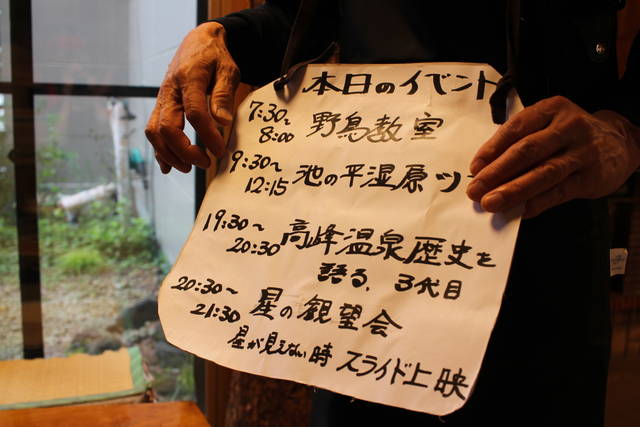 本日のイベント
7:30～
8:00 野鳥教室
9:30～
12:15 池の平湿原ツ
19:30～
20:30 高峰温泉歴史を
語る、3代目
20:30～
21:30 星の観望会
星が見えない時 スライド上映